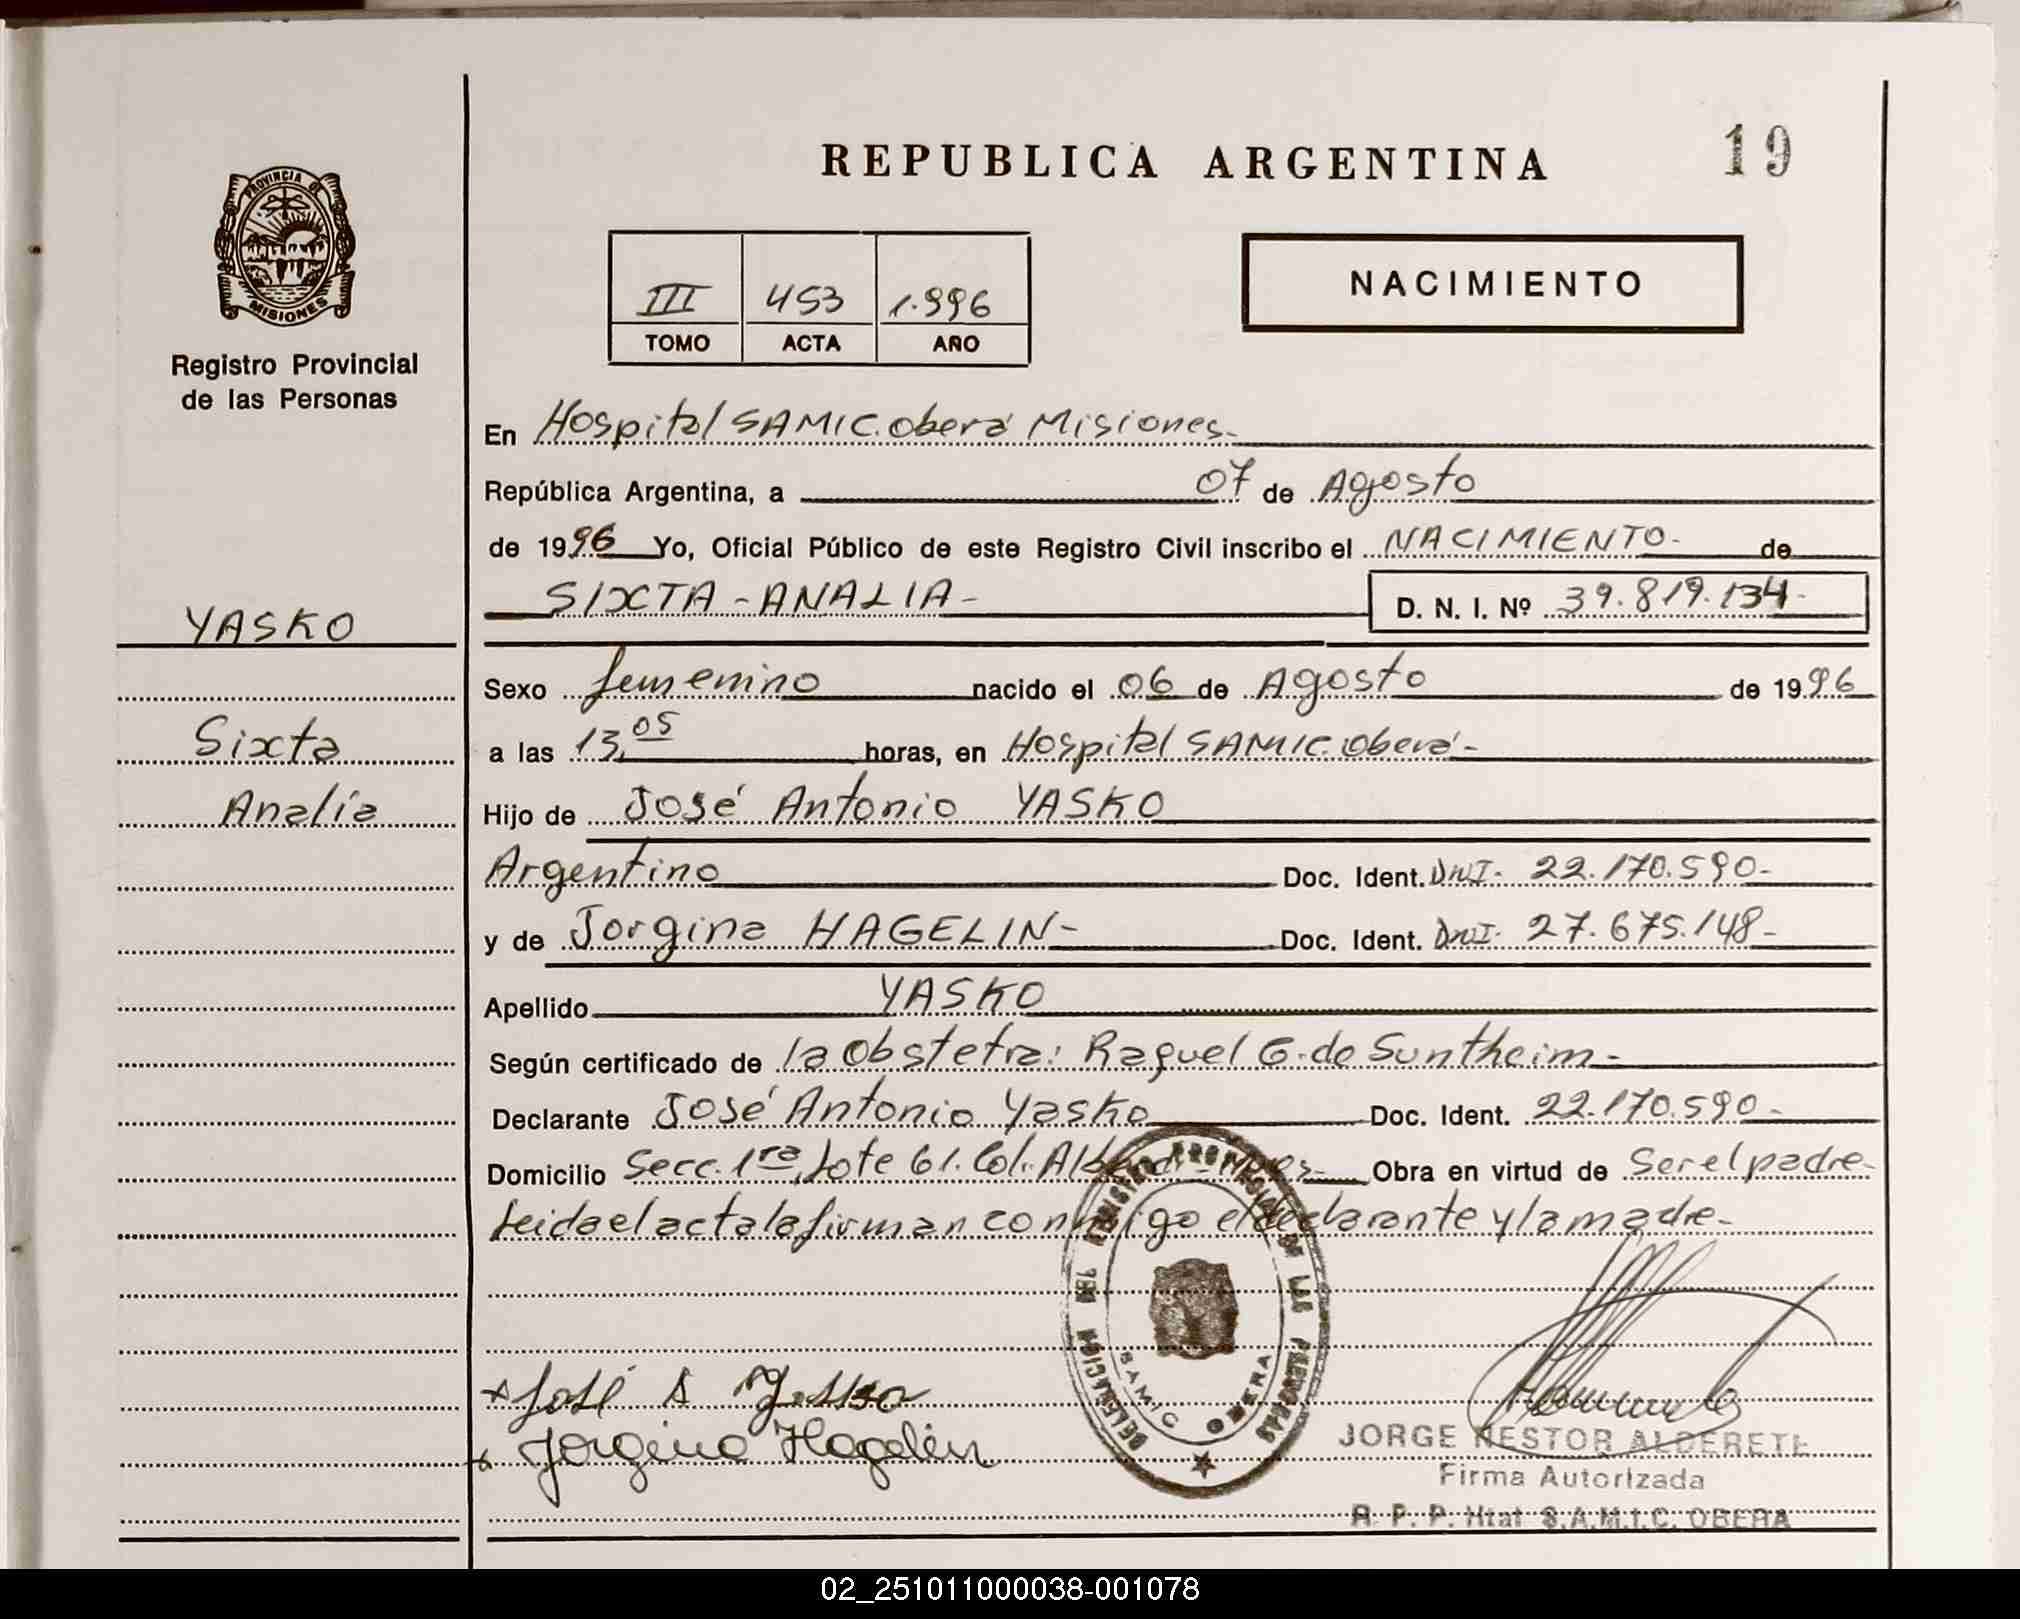 REPUBLICA ARGENTINA
19
PROVINCIA DE
MISIONES
Registro Provincial
de las Personas
III 453 1.996
TOMO ACTA AÑO
NACIMIENTO
En Hospital SAMIC. oberá Misiones.-
República Argentina, a 07 de Agosto
de 1996 Yo, Oficial Público de este Registro Civil inscribo el NACIMIENTO.- de
SIXTA - ANALIA -
D. N. I. Nº 39.819.134-
YASKO
Sixta
Analía
Sexo femenino nacido el 06 de Agosto de 1996
a las 13,05 horas, en Hospital SAMIC. Oberá -
Hijo de José Antonio YASKO
Argentino Doc. Ident. DNI. 22.170.590-
y de Jorgina HAGELIN - Doc. Ident. DNI. 27.675.148-
Apellido YASKO
Según certificado de la Obstetra: Raquel G. de Suntheim -
Declarante José Antonio Yasko Doc. Ident. 22.170.590-
Domicilio Secc. 1ra, Lote 61. Col. Obra en virtud de Ser el padre-
Leida el acta la firman conmigo el declarante y la madre-
DELEGACION DEL REGISTRO PROVINCIAL DE LAS PERSONAS
SAMIC OBERA
José A Yasko
Jorgina Hagelin
JORGE NESTOR ALDERETE
Firma Autorizada
R. P. P. Htal S.A.M.I.C. OBERA
02_251011000038-001078